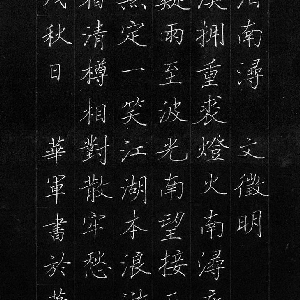 泊南潯 文徵明
漠擁重裘燈火南潯
疑雨至波光南望接天
無定一笑江湖本浪遊
宿清樽相對散牢愁
秋日 華軍書於